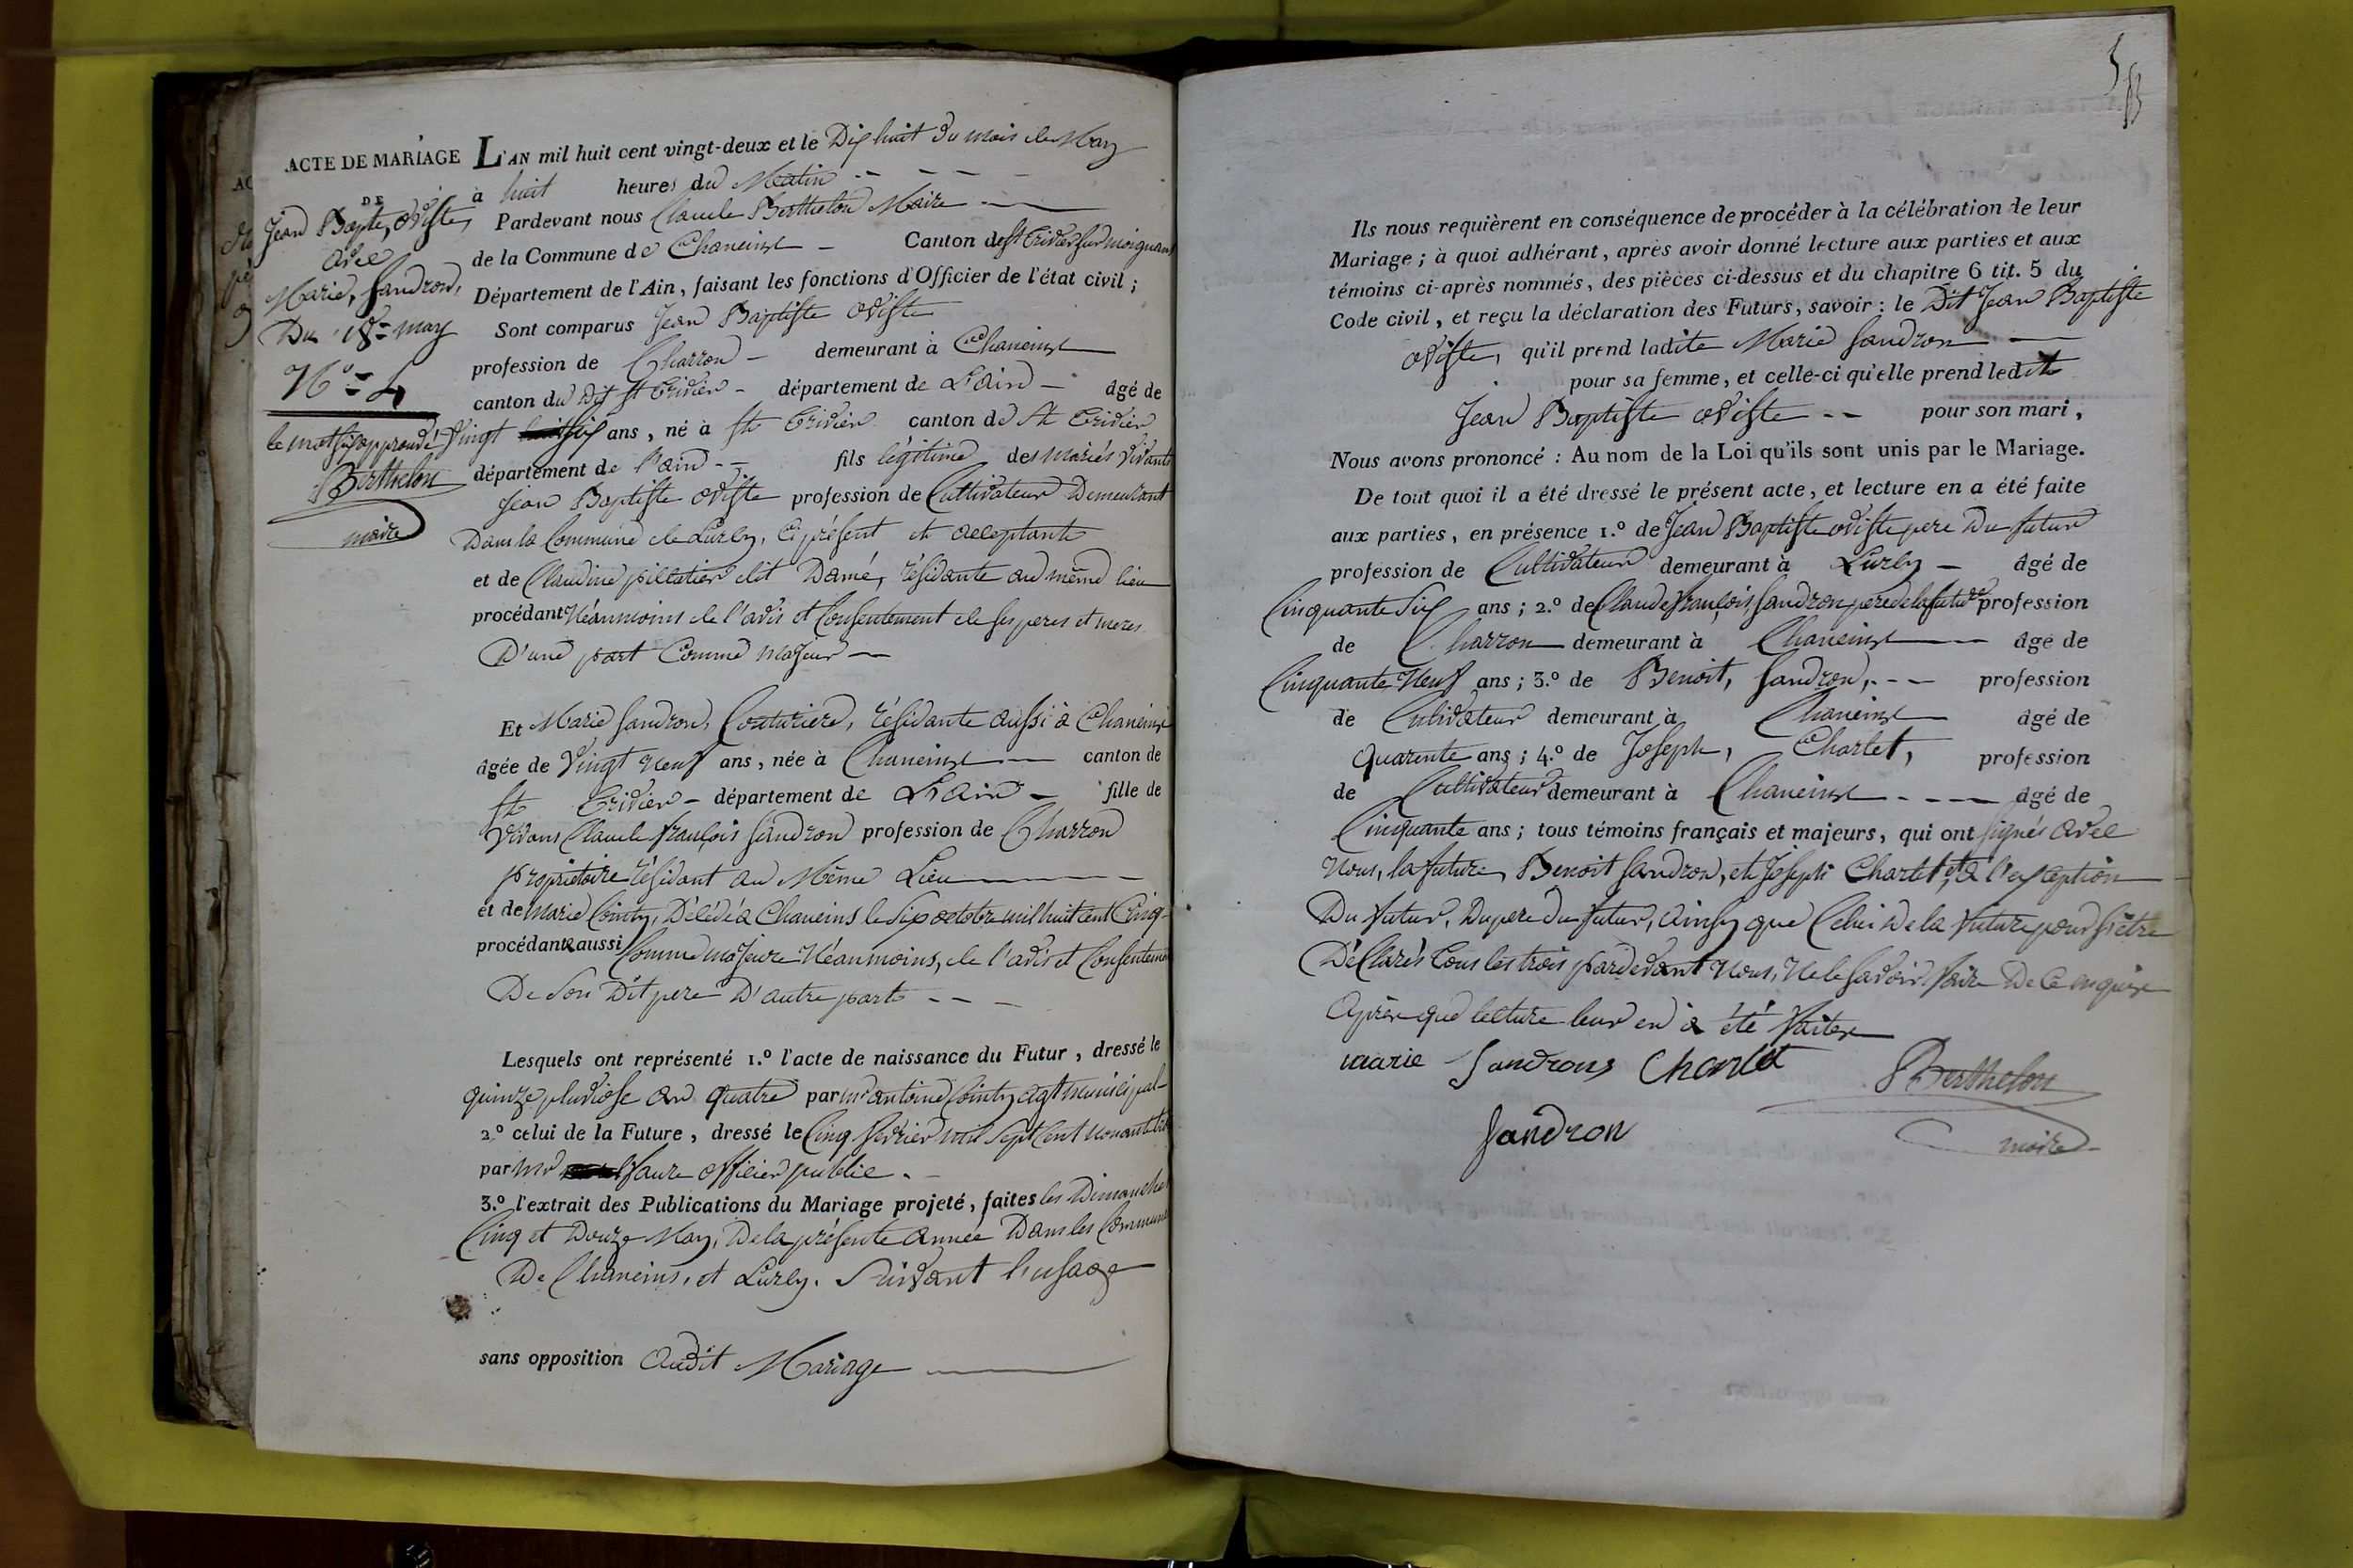 ACTE DE MARIAGE
DE
Jean Bapte, oviste,
avec
Marie, Sandron,
Du 18= may
N°= 4
le mot six approuvé
Berthelon
maire
L'AN mil huit cent vingt-deux et le Dix huit du mois de May
à huit heures du Matin
Pardevant nous Claude Berthelon Maire
de la Commune de Chaneins Canton de St Trivier sur moignans
Département de l'Ain, faisant les fonctions d'Officier de l'état civil ;
Sont comparus Jean Baptiste oviste
profession de Charron demeurant à Chaneins
canton du Dit St Trivier département de L'ain âgé de
Vingt six ans, né à St Trivier canton de St Trivier
département de l'ain fils légitime des mariés vivants
Jean Baptiste oviste profession de Cultivateur Demeurant
Dans la Commune de Lurcy, Ci présent et acceptant
et de Claudine pilletier dit Damé, résidante au même lieu
procédant Néanmoins de l'avis et Consentement de ses peres et meres
D'une part Comme majeur
Et Marie Sandron, Couturiere, résidante aussi à Chaneins
âgée de Vingt Neuf ans, née à Chaneins canton de
St Trivier département de L'ain fille de
vivans Claude françois Sandron profession de Charron
propriétaire résidant au Même Lieu
et de Marie Cointy, Décédé à Chaneins le Six octobre mil huit cent Cinq
procédante aussi Comme majeure Néanmoins, de l'avis et Consentement
De Son Dit pere D'autre part
Lesquels ont représenté 1.° l'acte de naissance du Futur, dressé le
quinze pluviose an quatre par mr antoine Cointy agt municipal
2.° celui de la Future, dressé le Cinq fevrier mil Sept Cent nonante trois
par mr faure officier public.
3.° l'extrait des Publications du Mariage projeté, faites les Dimanches
Cinq et Douze May, De la présente année Dans les Communes
De Chaneins, et Lurcy. Suivant l'usage
sans opposition audit Mariage
Ils nous requièrent en conséquence de procéder à la célébration de leur
Mariage ; à quoi adhérant, après avoir donné lecture aux parties et aux
témoins ci-après nommés, des pièces ci-dessus et du chapitre 6 tit. 5 du
Code civil, et reçu la déclaration des Futurs, savoir : le Dit Jean Baptiste
oviste, qu'il prend ladite Marie Sandron
pour sa femme, et celle-ci qu'elle prend ledit
Jean Baptiste oviste pour son mari,
Nous avons prononcé : Au nom de la Loi qu'ils sont unis par le Mariage.
De tout quoi il a été dressé le présent acte, et lecture en a été faite
aux parties, en présence 1.° de Jean Baptiste oviste pere Du futur
profession de Cultivateur demeurant à Lurcy âgé de
Cinquante Six ans ; 2.° de Claude françois Sandron pere de la future profession
de Charron demeurant à Chaneins âgé de
Cinquante Neuf ans ; 3.° de Benoit, Sandron, profession
de Cultivateur demeurant à Chaneins âgé de
quarente ans ; 4.° de Joseph, Charlet, profession
de Cultivateur demeurant à Chaneins âgé de
Cinquante ans ; tous témoins français et majeurs, qui ont signés avec
Nous, la future, Benoit Sandron, et Joseph Charlet, et à l'exception
Du futur, Du pere du futur, Ainsy que Celui De la future pour s'être
Déclarés Tous les trois pardevant Nous, Ne le Savoir faire De ce enquis
Après que lecture leur en à été faite
marie Sandrons Charlet
Berthelon
Sandron
maire